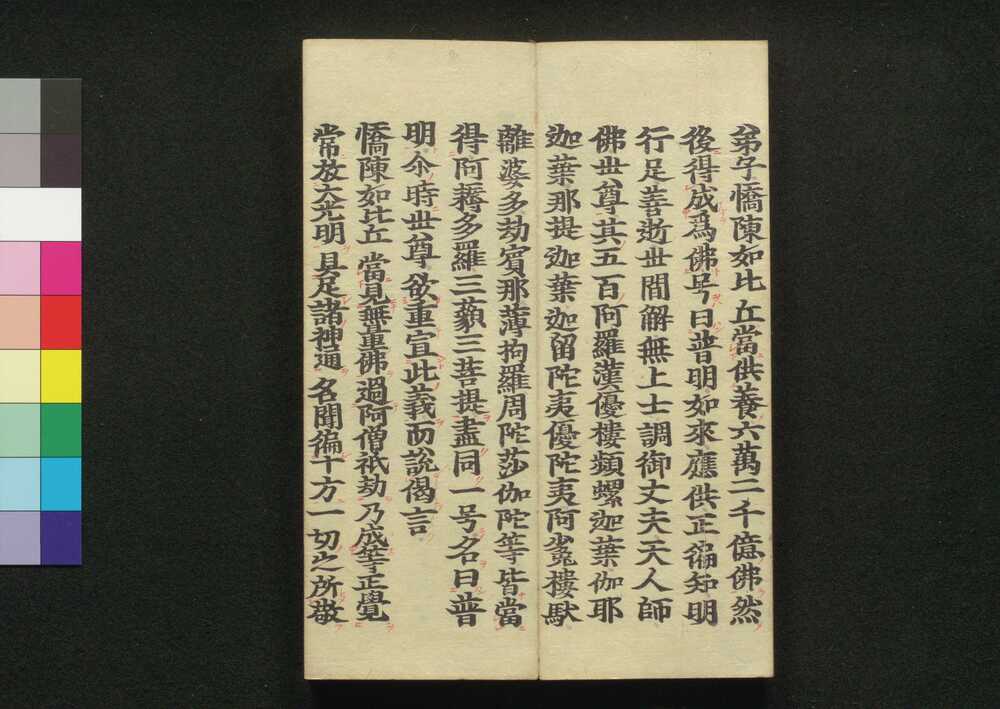 弟子憍陳如比丘當供養六萬二千億佛然
後得成爲佛号曰普明如來應供正徧知明
行足善逝世間解無上士調御丈夫天人師
佛世尊其五百阿羅漢優樓頻螺迦葉伽耶
迦葉那提迦葉迦留陀夷優陀夷阿㝹樓馱
離婆多劫賓那薄拘羅周陀莎伽陀等皆當
得阿耨多羅三藐三菩提盡同一号名曰普
明尒時世尊欲重宣此義而說偈言
憍陳如比丘 當見無量佛 過阿僧祇劫 乃成等正覺
常放大光明 具足諸神通 名聞徧十方 一切之所敬